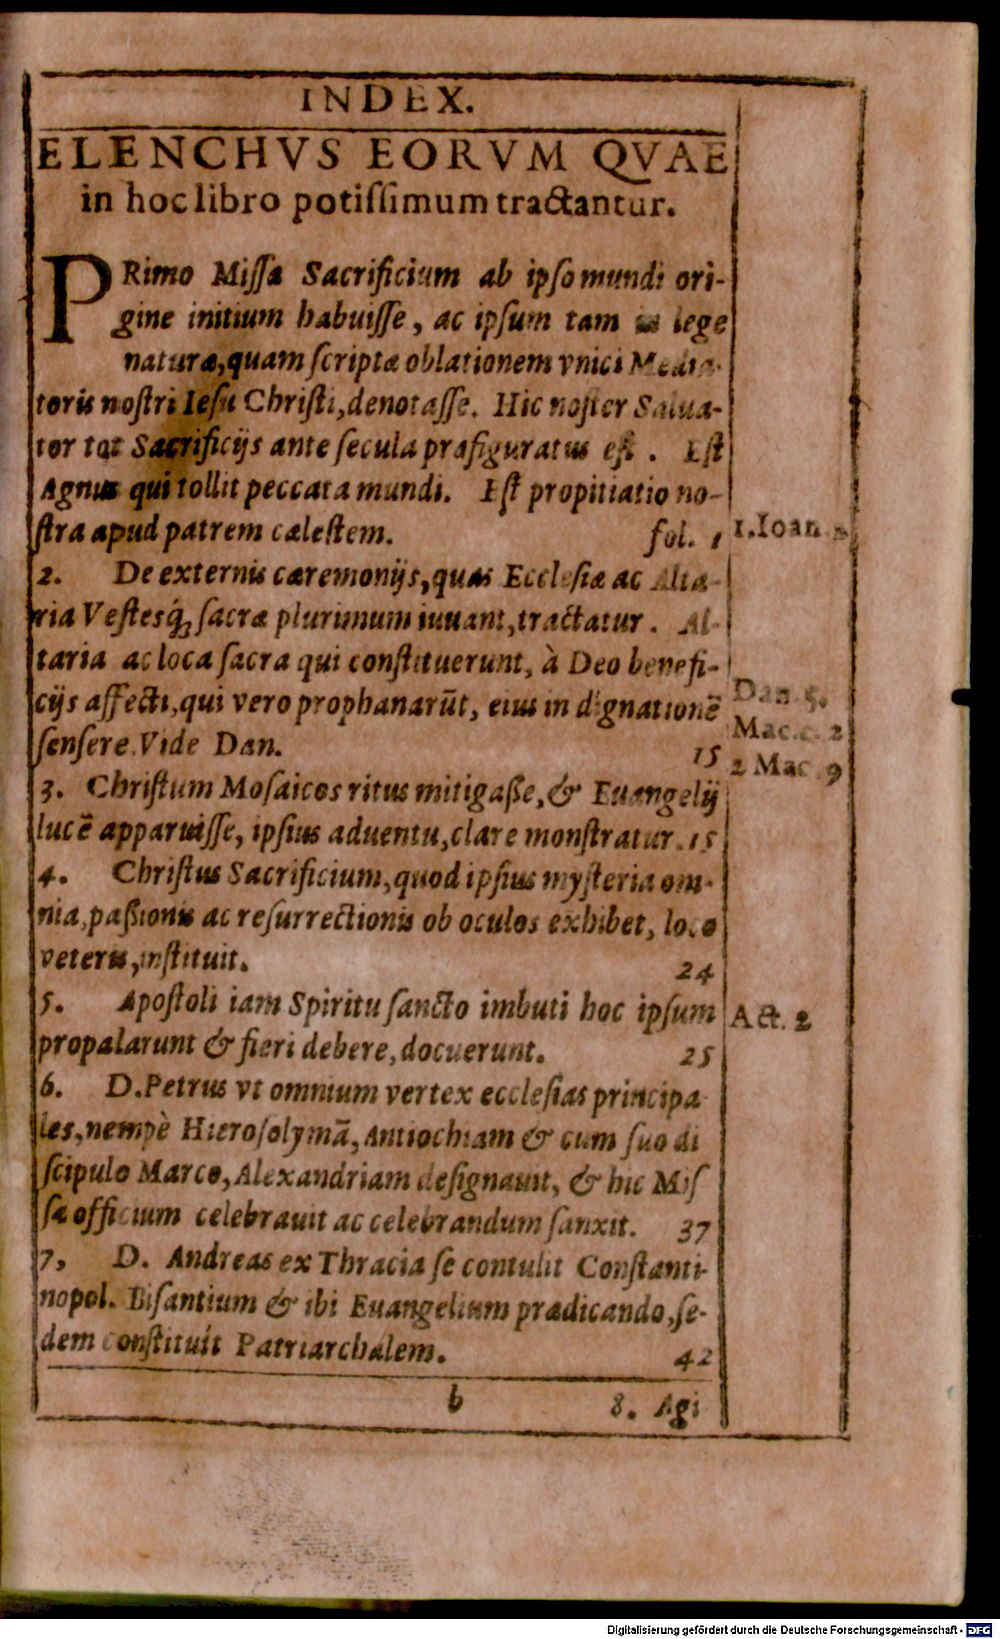 INDEX.
ELENCHVS EORVM QVAE
in hoc libro potissimum tractantur.
PRimo Missa Sacrificium ab ipso mundi ori-
gine initium habuisse, ac ipsum tam in lege
naturæ, quam scriptæ oblationem vnici Media-
toris nostri Iesu Christi, denotasse. Hic noster Salua-
tor tot Sacrificijs ante secula præfiguratus est. Est
Agnus qui tollit peccata mundi. Est propitiatio no-
stra apud patrem cælestem. fol. 1
1. Ioan. 2
2. De externis cæremonijs, quas Ecclesiæ ac Alta-
ria Vestesq́; sacræ plurimum iuuant, tractatur. Al-
taria ac loca sacra qui constituerunt, à Deo benefi-
cijs affecti, qui vero prophanarūt, eius indignationē
sensere. Vide Dan. 15
Dan. 5.
Mac. c. 2
2 Mac. 9
3. Christum Mosaicos ritus mitigaße, & Euangelij
lucē apparuisse, ipsius aduentu, clare monstratur. 15
4. Christus Sacrificium, quod ipsius mysteria om-
nia, paßionis ac resurrectionis ob oculos exhibet, loco
veteris, instituit. 24
5. Apostoli iam Spiritu sancto imbuti hoc ipsum
propalarunt & fieri debere, docuerunt. 25
Act. 2
6. D. Petrus vt omnium vertex ecclesias principa
les, nempè Hierosolymā, Antiochiam & cum suo di
scipulo Marco, Alexandriam designauit, & hic Mis
sæ officium celebrauit ac celebrandum sanxit. 37
7, D. Andreas ex Thracia se contulit Constanti-
nopol. Bisantium & ibi Euangelium prædicando, se-
dem constituit Patriarchalem. 42
b 8. Agi
Digitalisierung gefördert durch die Deutsche Forschungsgemeinschaft - DFG